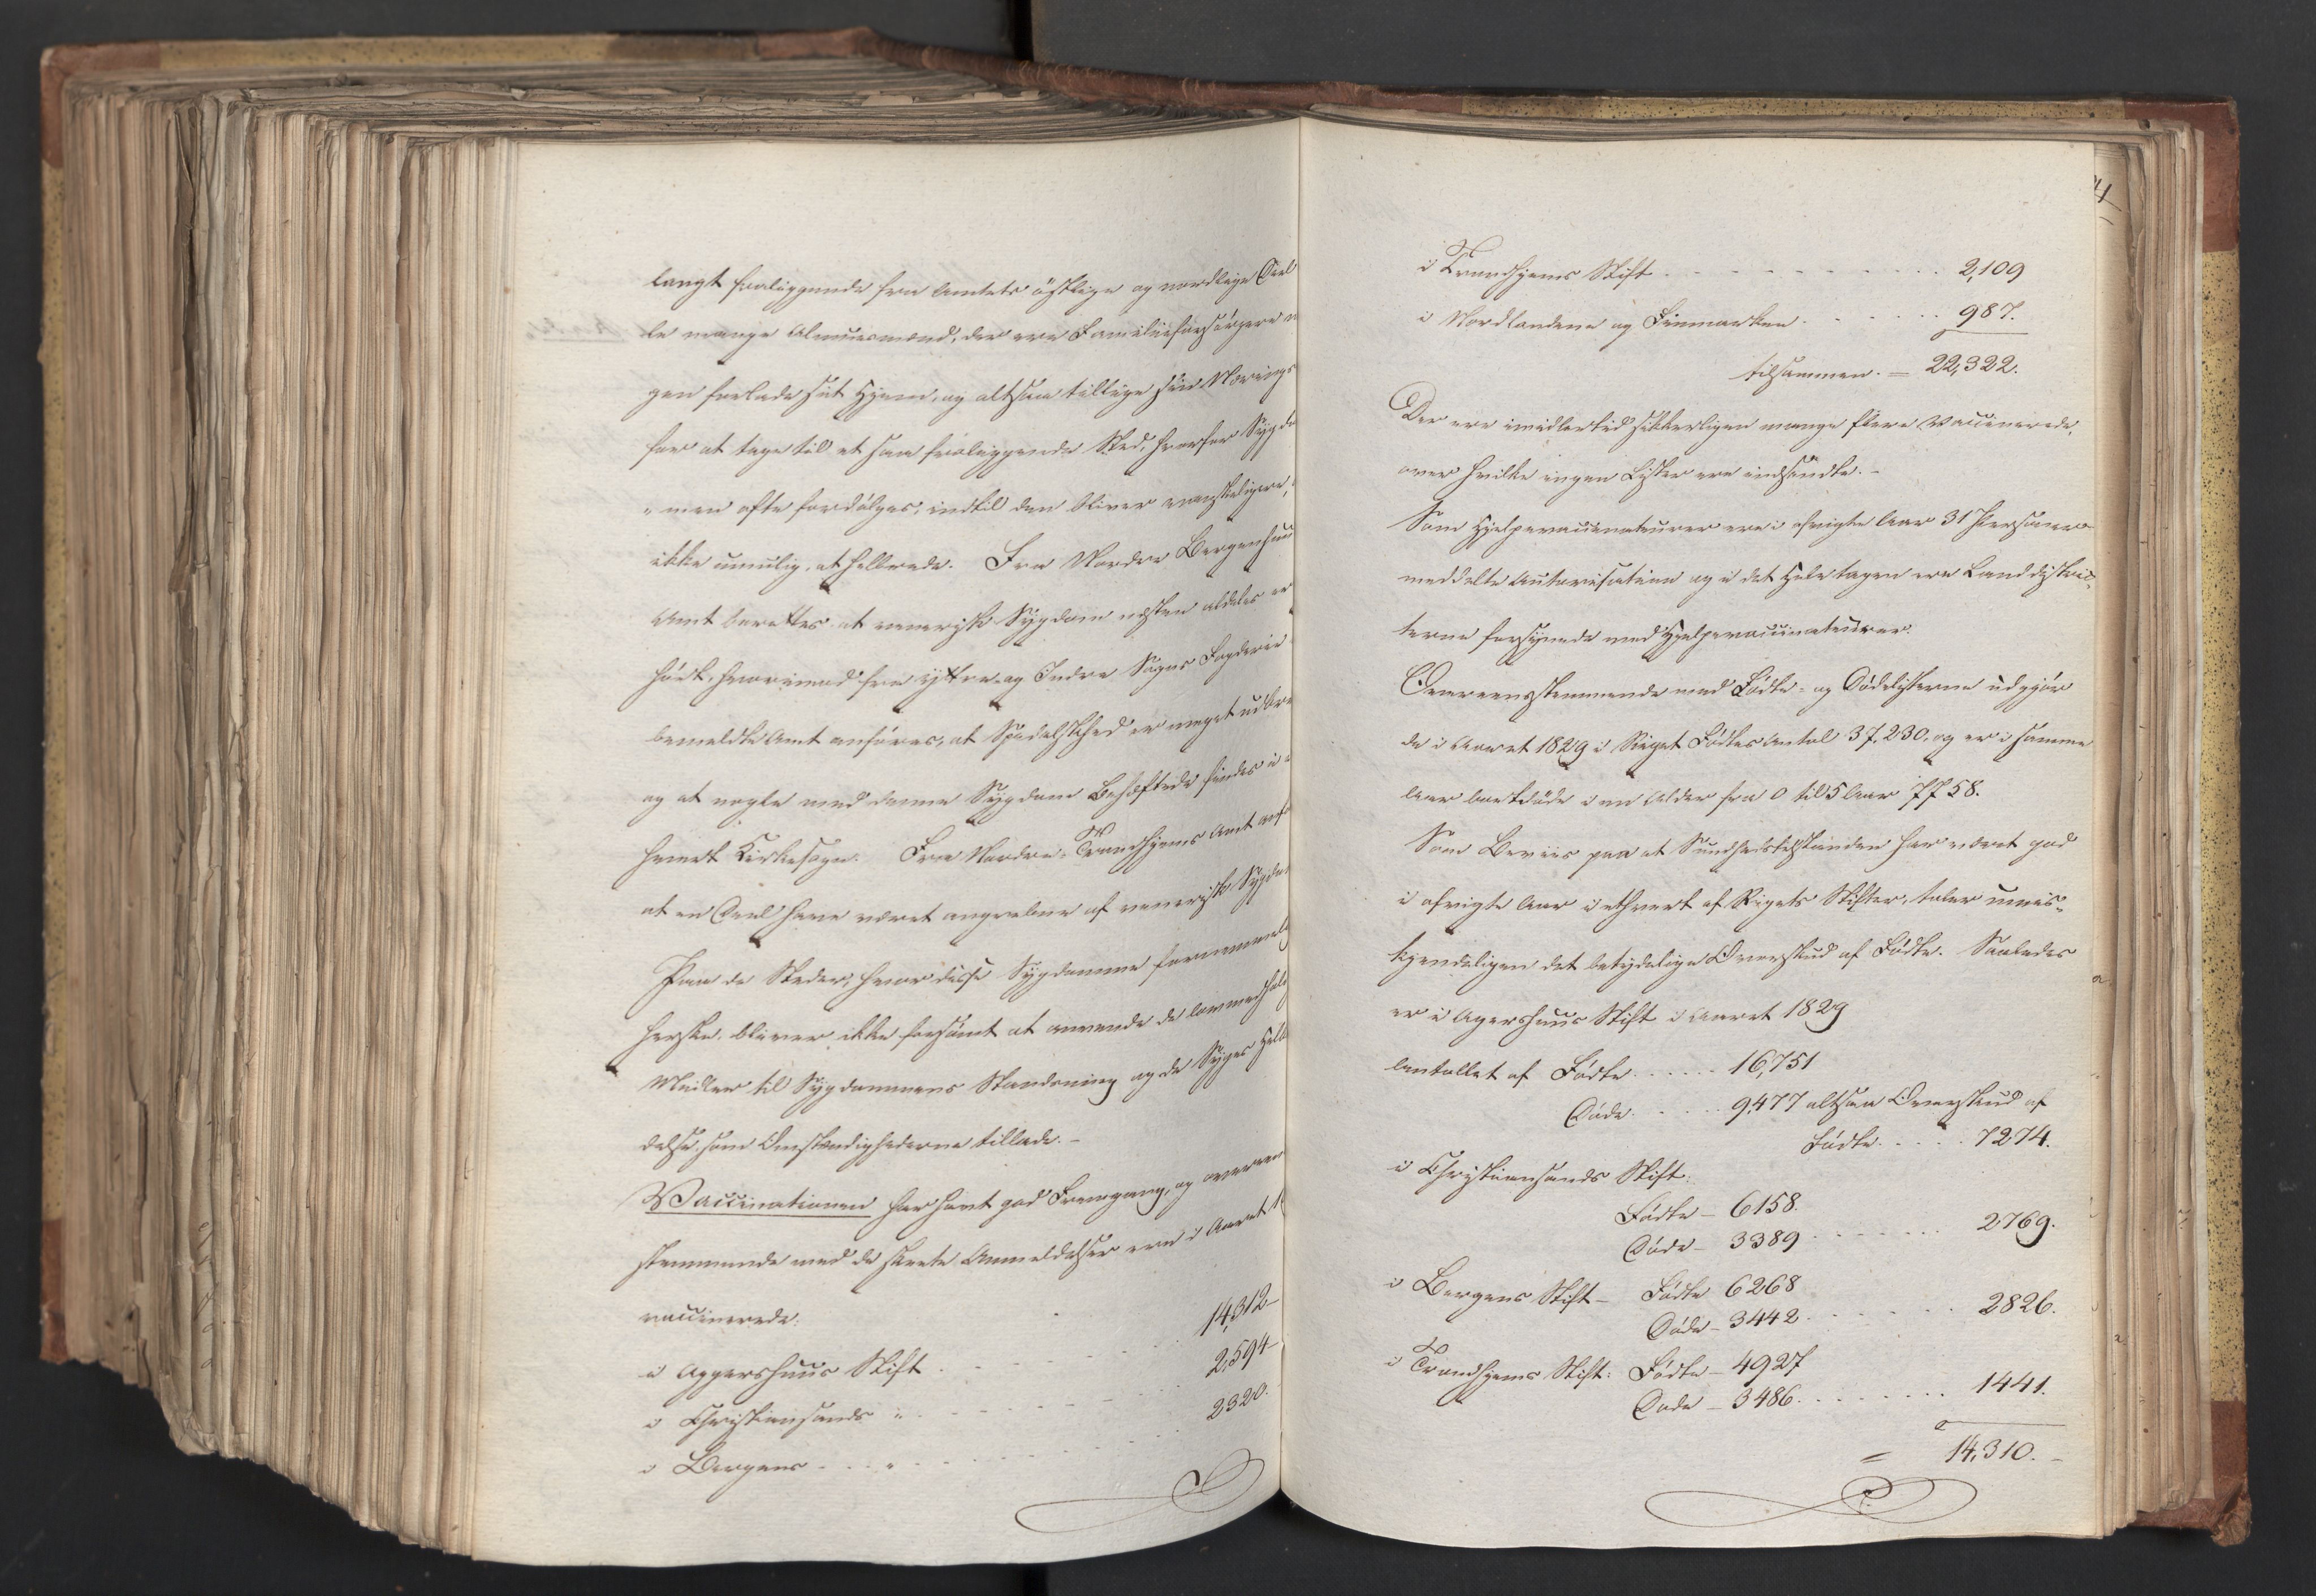 langt fraliggende fra Amtets östlige og nordlige Deel
le mange Almuesmænd, der ere Familieforsörgere
gen forlade sit Hjem, og altsaa tillige sin Nærings
for at tage til et saa fraliggende Sted, hvorfor Sygdo
"men ofte fordölges, indtil den bliver vanskeligere,
ikke umulig, at helbrede. Fra Nordre Bergenhuus
Amt berettes at venerisk Sygdom næsten aldeles er
hört, hvorimod fra yttre og Indre Sogns Fogderie
bemeldte Amt anföres, at Spedalskhed er meget udbre
og at nogle med denne Sygdom Behæftede findes i
hvert Kirkesogn. Fra Nordre-Trondhjems Amt anf
at en Deel have været angrebne af venerisk Sygdom
Paa de Steder, hvor disse Sygdomme fornemmelig
herske, bliver ikke forsömt at anvende de lovmedhold
Midler til Sygdommens Standsning og de Syges Helb
delse, som Omstændighederne tillade.-
Vaccinationen har havt god Fremgang, og overeens
stemmende med de skeete Anmeldelser ere i Aaret 1
vaccinerede:
i Aggershuus Stift . . . 14,312-
i Christiansands " . . . 2,594-
i Bergens . . . " . . . 2320.
4
i Trondhjems Stift . . . 2,109
i Nordlandene og Finmarken . . . 987.
tilsammen. = 22,322.
Der ere imidlertid sikkerligen mange flere Vaccinerede,
over hvilke ingen Lister ere indsendte.-
Som Hjelpevaccinateurer ere i afvigte Aar 31 Personer
meddelte Autorisation og i det Hele tagen ere Landdistric-
terne forsynede med Hjelpevaccinateurer.
Overeensstemmende med Födte- og Dödelisterne udgjör
de i Aaret 1829 i Riget Födtes Antal 37,230, og er i samme
Aar bortdöde i en Alder fra 0 til 5 Aar 7758.
Som Beviis paa at Sundhedstilstanden har været god
i afvigte Aar i ethvert af Rigets Stifter, taler umis-
kjendeligen det betydelige Overskud af Födte. Saaledes
er i Agershuus Stift i Aaret 1829
Antallet af Födte . . . 16,751
Döde . . . 9477 altsaa Overskud af
Födte . . . 7274.
i Christiansands Stift:
Födte - 6158.
Döde - 3389 . . . 2769.
i Bergens Stift - Födte 6268
Döde - 3442 . . . 2826.
i Trondhjems Stift: Födte - 4927
Döde - 3486 . . . 1441.
= 14,310.-